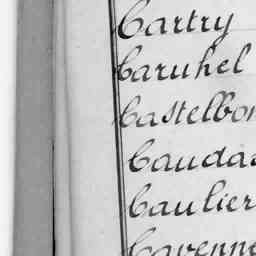 Cartry
Caruhel
Castelbon
Caudas
Caulier
Cavenne